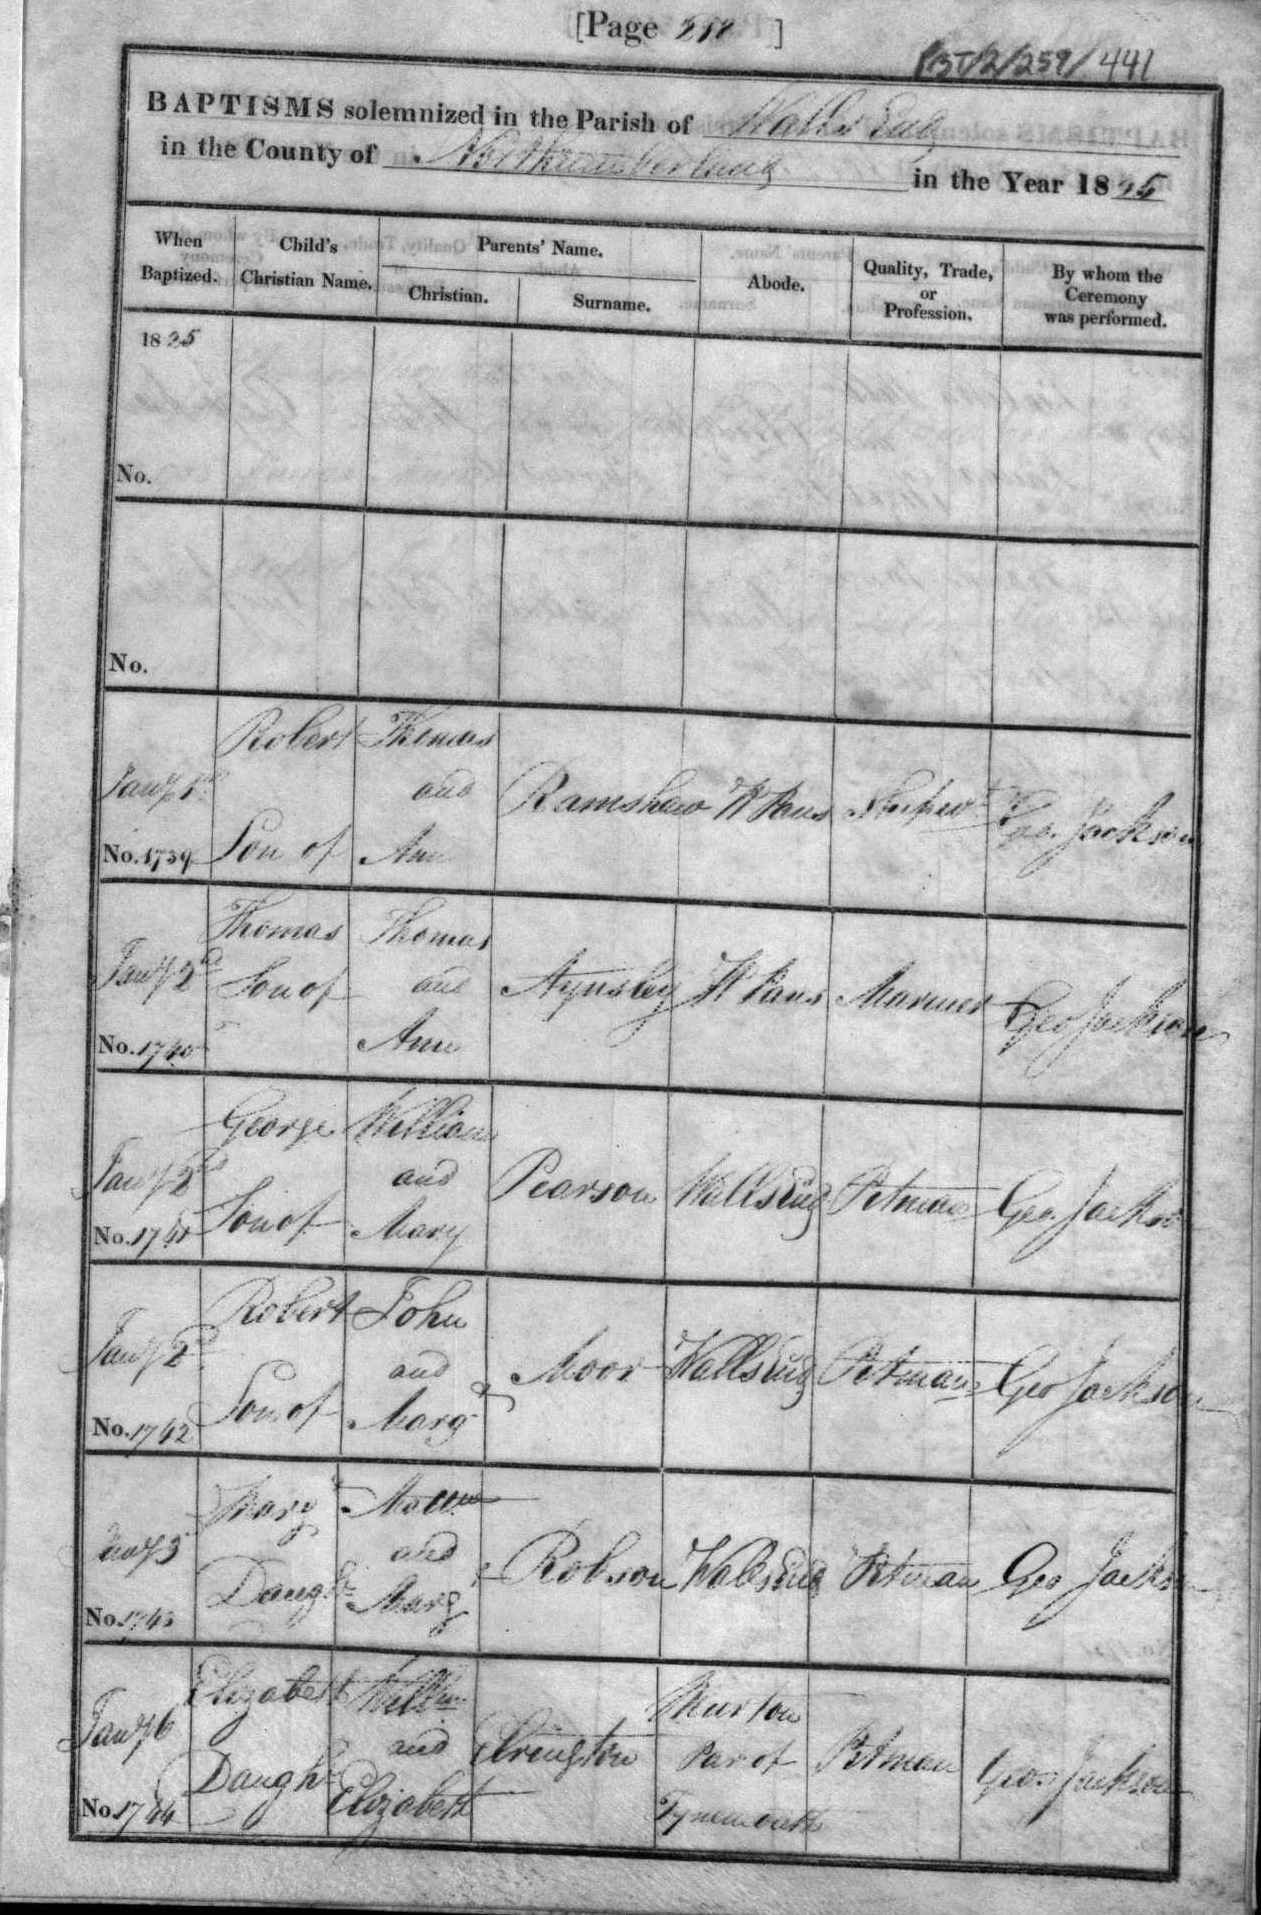 [Page ]
441
BAPTISMS solemnized in the Parish of Walls End
in the County of Northumberland in the Year 1825
When Baptized. Child's Christian Name. Parents' Name. Christian. Surname. Abode. Quality, Trade, or Profession. By whom the Ceremony was performed.
1825
No.
No.
Robert Thomas
Jany 1st and Ramshaw W Pans Geo. Jackson
No. 1739 Son of Ann
Thomas Thomas
Jany 2d Son of and Aynsley W Pans Mariner Geo Jackson
No. 1740 Ann
George William
Jany 2d and Pearson Wallsend Pitman Geo. Jackson
No. 1741 Son of Mary
Robert John
Jany 2d and Moor Wallsend Pitman Geo Jackson
No. 1742 Son of Margt
Mary
Jany 3 and Robson Wallsend Pitman Geo Jackson
No. 1743 Daughr Margt
Elizabeth Willm Murton
Jany 6 and Elrington Par of Pitman Geo. Jackson
No. 1744 Daughr Elizabeth Tynemouth